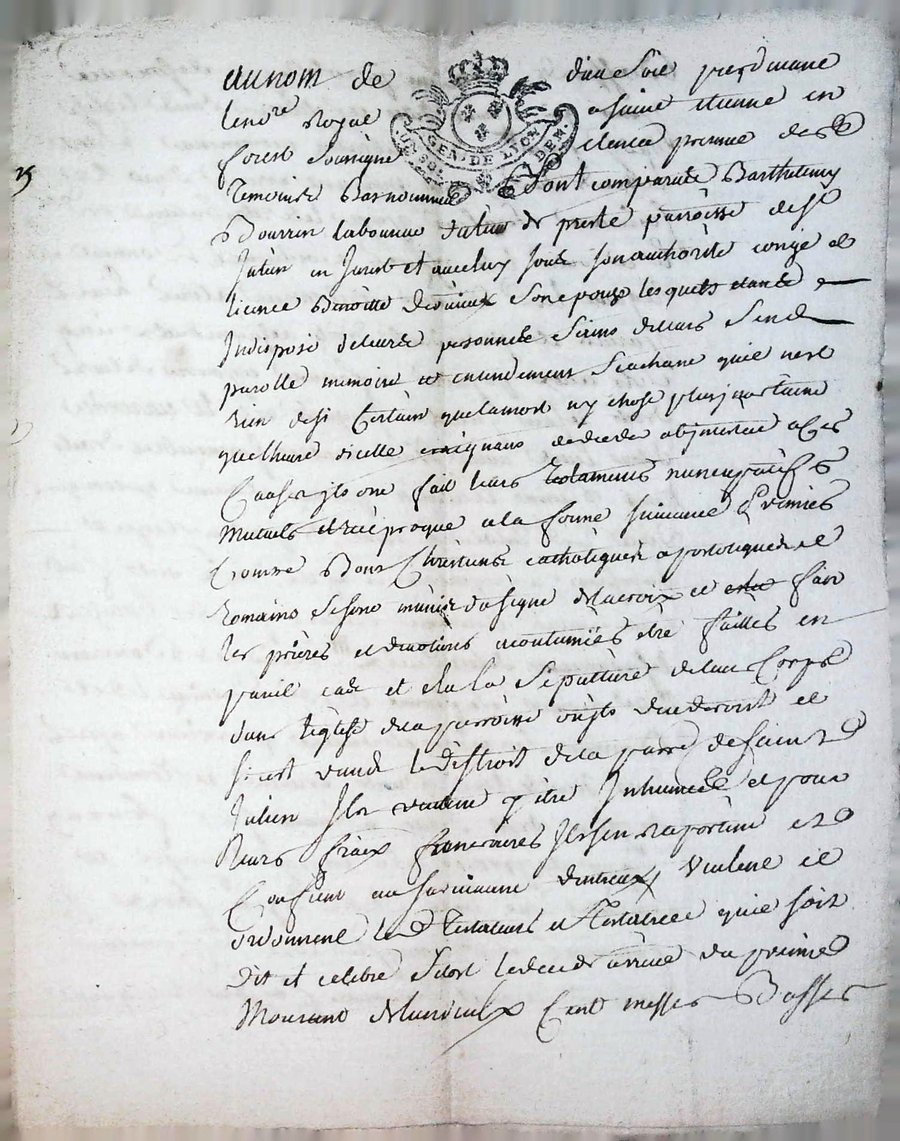 au nom de dieu soie par devant
le no.re Royal a saint etienne en
forest soussigné
GEN. DE LYON
UN SOL
DEN.
et en la presence des
Temoins Basnommés sont comparus Barthelemy
Bourrin laboureur du lieu de parroisse de St
Julien en Jarest et avec luy sous son authorité congé et
licence Benoitte sone pouse lesquels etants
Indisposé de leurs personnes Seins de leurs sens
parolle memoire et entendement Scachant qu'il n'est
rien de si Certain que la mort ny chose plus incertaine
que lheure dicelle craignant de deceder abjntestat a Ces
Causes jls ont fait leurs testaments nuncupatifs
Mutuels et reciproque a la forme suivante premierement
Comme Bons Chrestiens catholiques apostoliques et
Romains se sont munis du signe de la croix et fait
les prieres et devotions acoutumées etre faittes en
pareil cas et elu la Sepulture de leur Corps
dans l'eglise de la parroisse ou jls decederont et
si c'est dans le distroit de la parroisse de saint
Julien Jls veulent y etre Inhumés et pour
leurs fraix funeraires Jls sen raportent et se
Confient au survivant d'entreux Veulent et
ordonnent les Testateurs et Testatrice qu'il soit
dit et celebré sitot le deces arrivé du premier
Mourant d'entreux Cent messes Basses